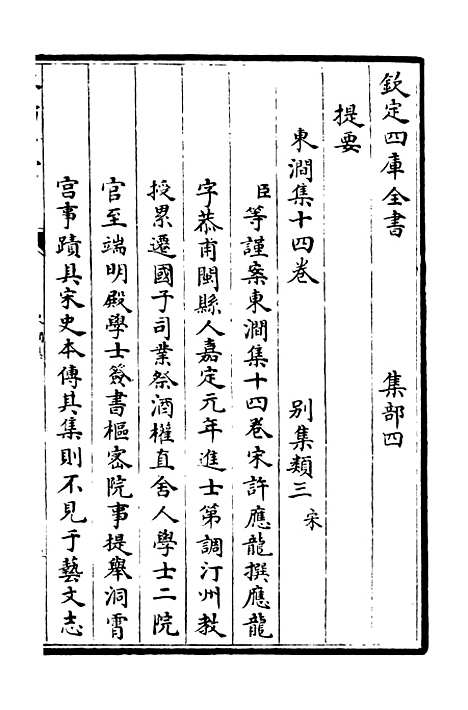 欽定四庫全書 集部四
提要
東澗集十四卷 別集類三 宋
臣等謹案東澗集十四卷宋許應龍撰應龍
字恭甫閩縣人嘉定元年進士第調汀州教
授累遷國子司業祭酒權直舍人學士二院
官至端明殿學士簽書樞密院事提舉洞霄
宫事蹟具宋史本傳其集則不見于藝文志